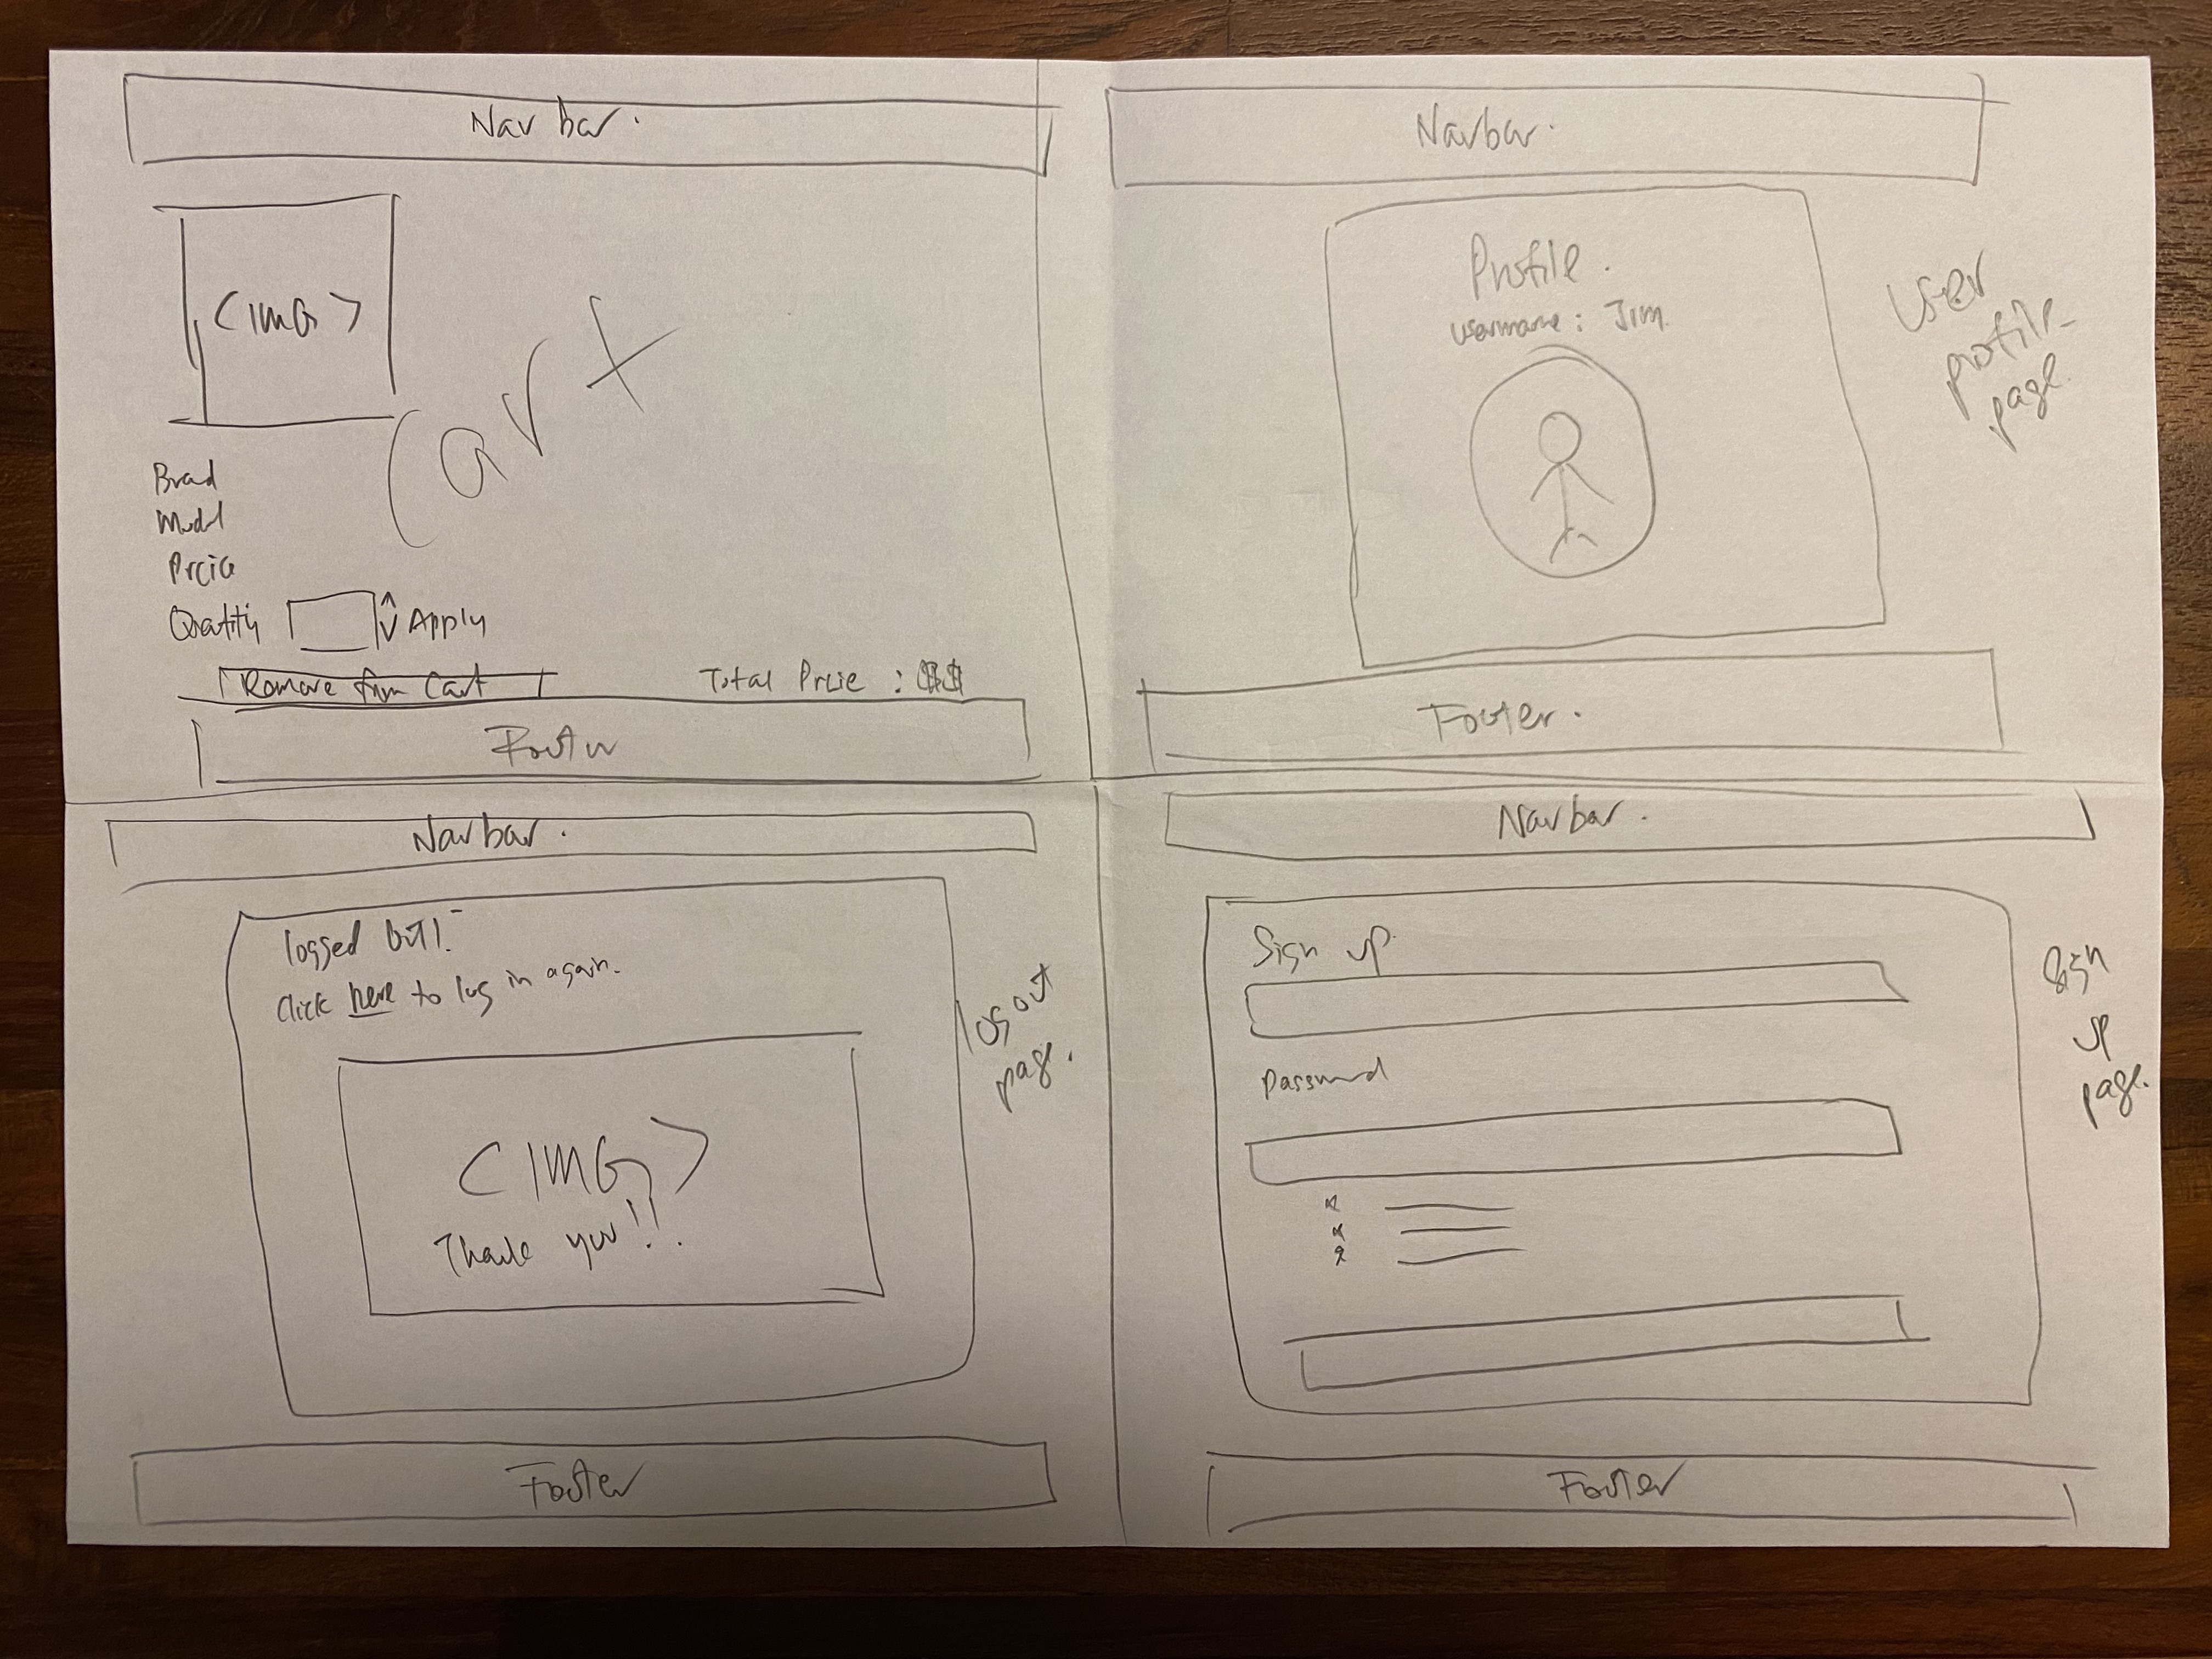 Navbar.
<IMG>
Cart
Brad
Model
Prcie
Quatity
Apply
Remove from Cart
Total Prcie : $$
Footer
Navbar.
Profile.
username: Jim.
User
profile
page.
Footer.
Navbar.
logged out!
Click here to log in again.
<IMG>
Thank you!!
log out
page.
Footer
Navbar.
Sign up
Password
Sign
up
page.
Footer